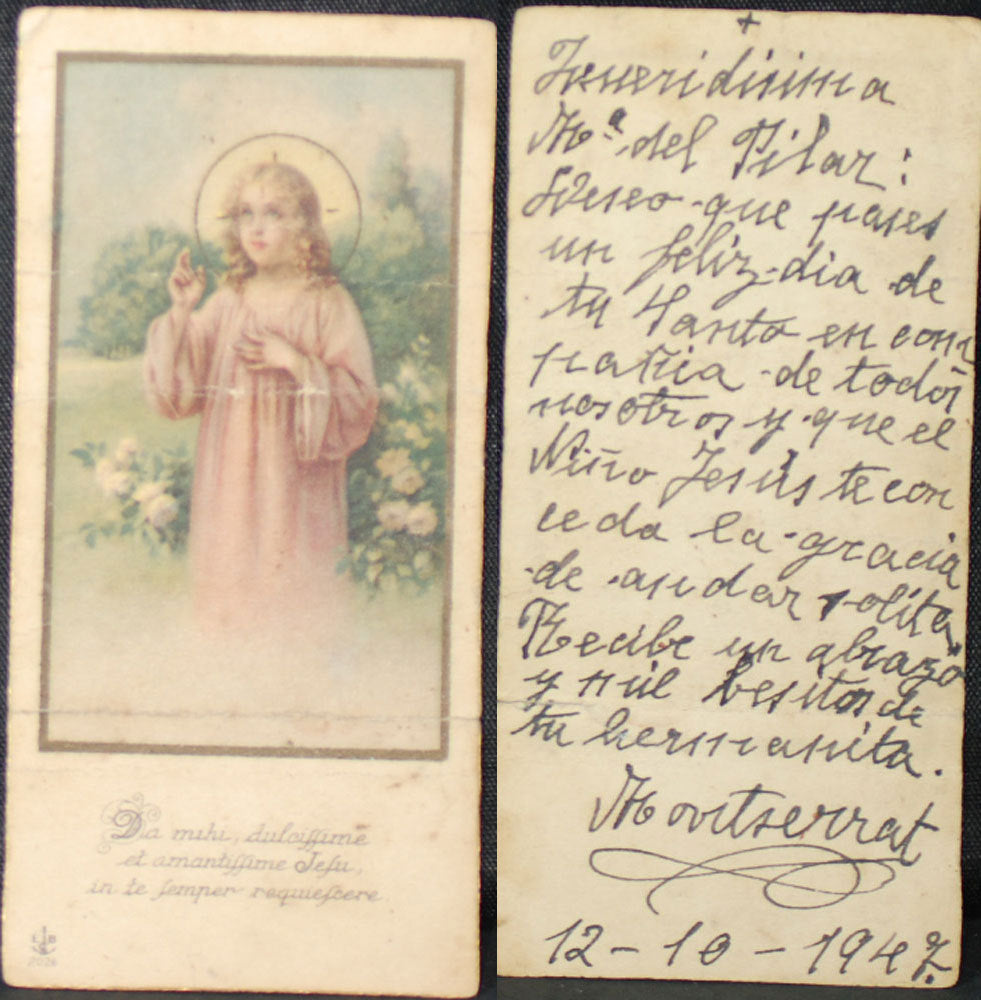 Da mihi, dulcissime
et amantissime Jesu,
in te semper requiescere.
E B
2026
+
Queridisima
Mª del Pilar:
Deseo que pases
un feliz dia de
tu Santo en com
pañia de todos
nosotros y que el
Niño Jesús te con
ceda la gracia
de andar solita
Recibe un abrazo
y mil besitos de
tu hermanita.
Montserrat
12-10-1947.